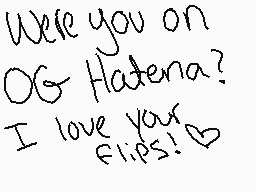 Were you on
OG Hatena?
I love your
flips! ♡